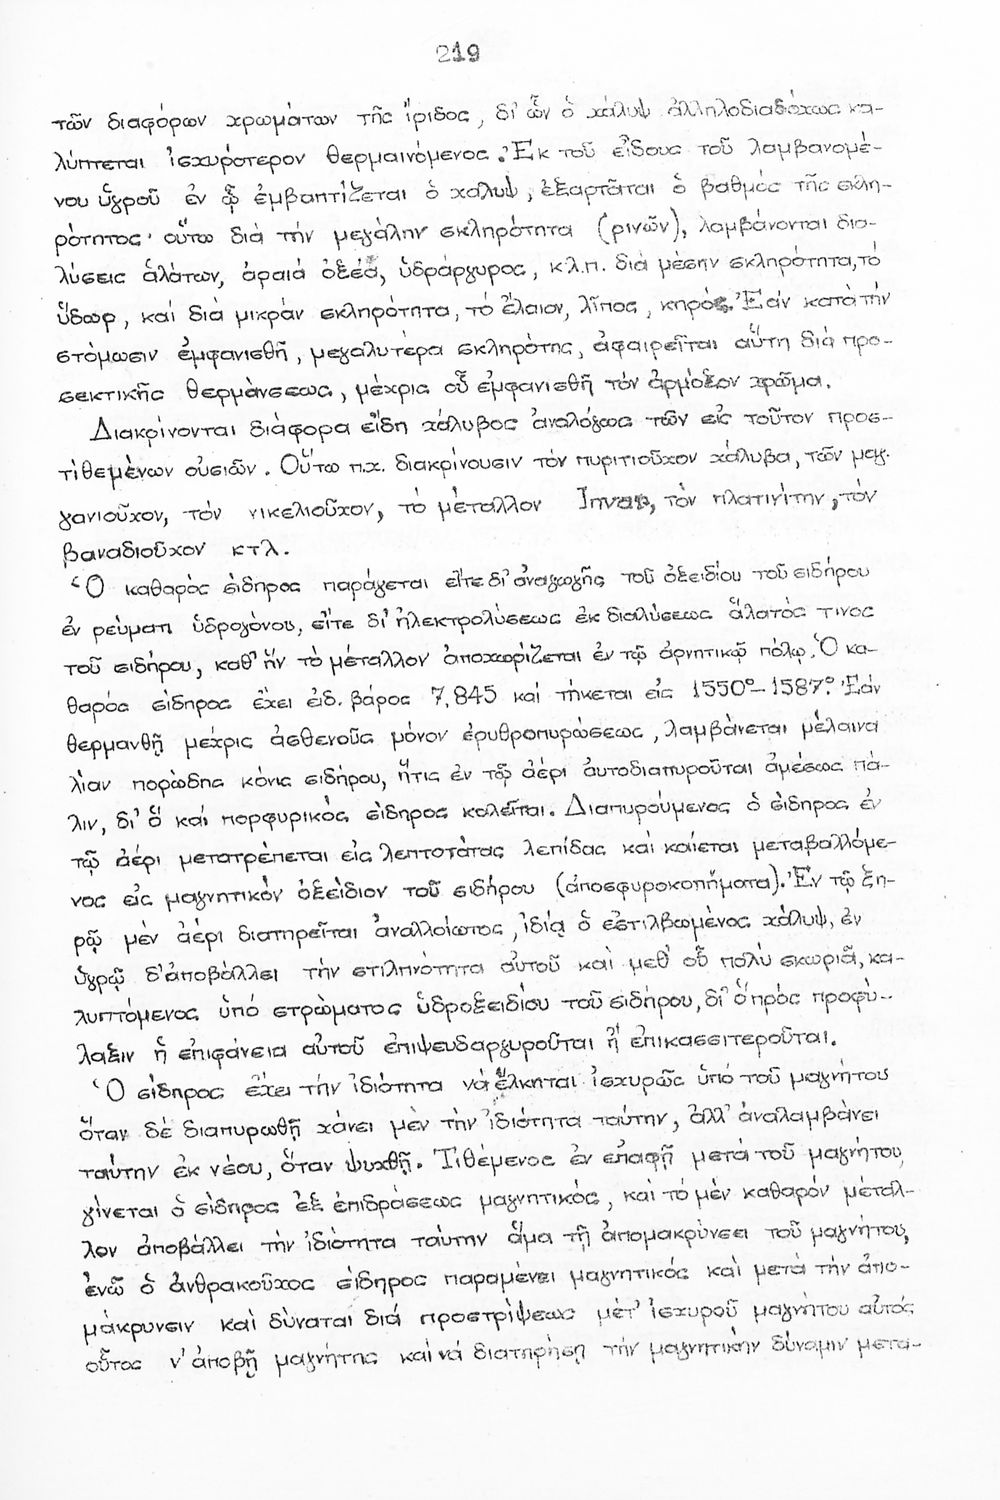 219
τῶν διαφόρων χρωμάτων τῆς ἴριδος, δι' ὧν ὁ χάλυψ ἀλληλοδιαδόχως κα-
λύπτεται ἰσχυρότερον θερμαινόμενος. Ἐκ τοῦ εἴδους τοῦ λαμβανομέ-
νου ὑγροῦ ἐν ᾧ ἐμβαπτίζεται ὁ χάλυψ, ἐξαρτᾶται ὁ βαθμός τῆς σκλη-
ρότητος· οὕτω διά τήν μεγάλην σκληρότητα (ρινῶν), λαμβάνονται δια-
λύσεις ἁλάτων, ἀραιά ὀξέα, ὑδράργυρος, κ.λ.π. διά μέσην σκληρότητα, τό
ὕδωρ, καί διά μικράν σκληρότητα, τό ἔλαιον, λῖπος, κηρός. Ἐάν κατά τήν
στόμωσιν ἐμφανισθῇ, μεγαλυτέρα σκληρότης, ἀφαιρεῖται αὕτη διά προ-
σεκτικῆς θερμάνσεως, μέχρις οὗ ἐμφανισθῇ τόν ἁρμόζον χρῶμα.
Διακρίνονται διάφορα εἴδη χάλυβος ἀναλόγως τῶν εἰς τοῦτον προσ-
τιθεμένων οὐσιῶν. Οὕτω π.χ. διακρίνουσιν τόν πυριτιοῦχον χάλυβα, τῶν μαγ-
γανιοῦχον, τόν νικελιοῦχον, τό μέταλλον Invar, τόν πλατινίτην, τόν
βαναδιοῦχον κτλ.
Ὁ καθαρὸς σίδηρος παράγεται εἴτε δι' ἀναγωγῆς τοῦ ὀξειδίου τοῦ σιδήρου
ἐν ρεύματι ὑδρογόνου, εἴτε δι' ἠλεκτρολύσεως ἐκ διαλύσεως ἅλατός τινος
τοῦ σιδήρου, καθ' ἥν τὸ μέταλλον ἀποχωρίζεται ἐν τῷ ἀρνητικῷ πόλῳ. Ὁ κα-
θαρός σίδηρος ἔχει εἰδ. βάρος 7,845 καί τήκεται εἰς 1550°-1587°. Ἐάν
θερμανθῇ μέχρις ἀσθενοῦς μόνον ἐρυθροπυρώσεως, λαμβάνεται μέλαινα
λίαν πορώδης κόνις σιδήρου, ἥτις ἐν τῷ ἀέρι αὐτοδιαπυροῦται ἀμέσως πά-
λιν, δι' ὅ καί πορφυρικός σίδηρος καλεῖται. Διαπυρούμενος ὁ σίδηρος ἐν
τῷ ἀέρι μετατρέπεται εἰς λεπτοτάτας λεπίδας καὶ καίεται μεταβαλλόμε-
νος εἰς μαγνητικὸν ὀξείδιον τοῦ σιδήρου (ἀποσφυροκοπήματα). Ἐν τῷ ξη-
ρῷ μέν ἀέρι διατηρεῖται ἀναλλοίωτος, ἰδίᾳ ὁ ἐστιλβωμένος χάλυψ, ἐν
ὑγρῷ δ' ἀποβάλλει τήν στιλπνότητα αὐτοῦ καὶ μεθ' οὗ πολύ σκωριᾷ, κα-
λυπτόμενος ὑπό στρώματος ὑδροξειδίου τοῦ σιδήρου, δι' ὅ πρός προφύ-
λαξιν ἡ ἐπιφάνεια αὐτοῦ ἐπιψευδαργυροῦται ἤ ἐπικασσιτεροῦται.
Ὁ σίδηρος ἔχει τήν ἰδιότητα νά ἕλκηται ἰσχυρῶς ὑπό τοῦ μαγνήτου
ὅταν δέ διαπυρωθῇ χάνει μέν τήν ἰδιότητα ταύτην, ἀλλ' ἀναλαμβάνει
ταύτην ἐκ νέου, ὅταν ψυχθῇ. Τιθέμενος ἐν ἐπαφῇ μετά τοῦ μαγνήτου
γίνεται ὁ σίδηρος ἐξ ἐπιδράσεως μαγνητικός, καί τό μέν καθαρόν μέταλ-
λον ἀποβάλλει τήν ἰδιότητα ταύτην ἅμα τῇ ἀπομακρύνσει τοῦ μαγνήτου,
ἐνῶ ὁ ἀνθρακοῦχος σίδηρος παραμένει μαγνητικός καὶ μετά τήν ἀπο-
μάκρυνσιν καὶ δύναται διά προστρίψεως μετ' ἰσχυροῦ μαγνήτου αὐτός
οὗτος ν' ἀποβῇ μαγνήτης καί νά διατηρήσῃ τήν μαγνητικήν δύναμιν μετα-